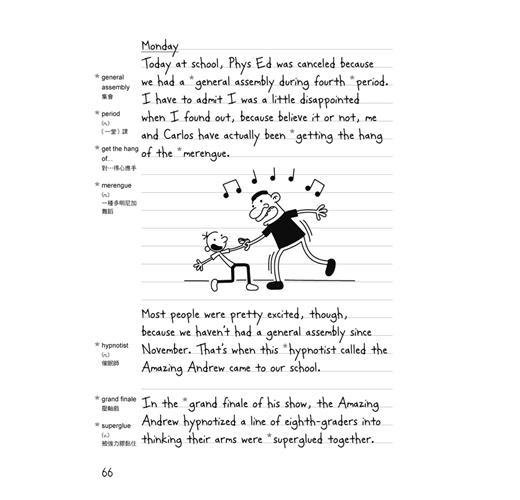 Monday
Today at school, Phys Ed was canceled because
we had a *general assembly during fourth *period.
I have to admit I was a little disappointed
when I found out, because believe it or not, me
and Carlos have actually been *getting the hang
of the *merengue.
* general
assembly
集會
* period
(n.)
(一堂)課
* get the hang
of...
對…得心應手
* merengue
(n.)
一種多明尼加
舞蹈
Most people were pretty excited, though,
because we haven't had a general assembly since
November. That's when this *hypnotist called the
Amazing Andrew came to our school.
* hypnotist
(n.)
催眠師
In the *grand finale of his show, the Amazing
Andrew hypnotized a line of eighth-graders into
thinking their arms were *superglued together.
* grand finale
壓軸戲
* superglue
(v.)
被強力膠黏住
66